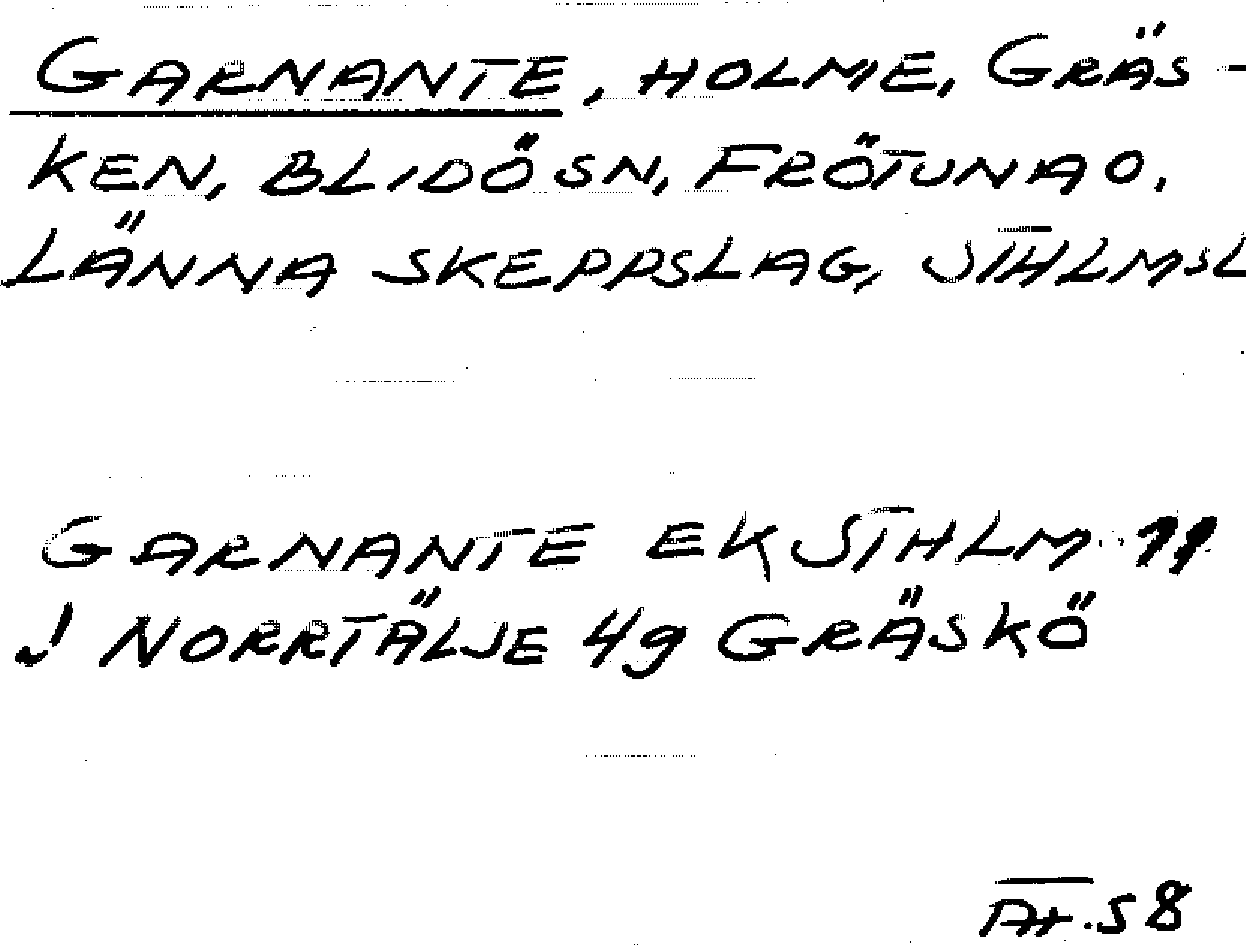 GARNANTE, HOLME, GRÄS-
KEN, BLIDÖ SN, FRÖTUNA O.
LÄNNA SKEPPSLAG, STHLMSL
GARNANTE EK STHLM 11
J NORRTÄLJE 4g GRÄSKÖ
58